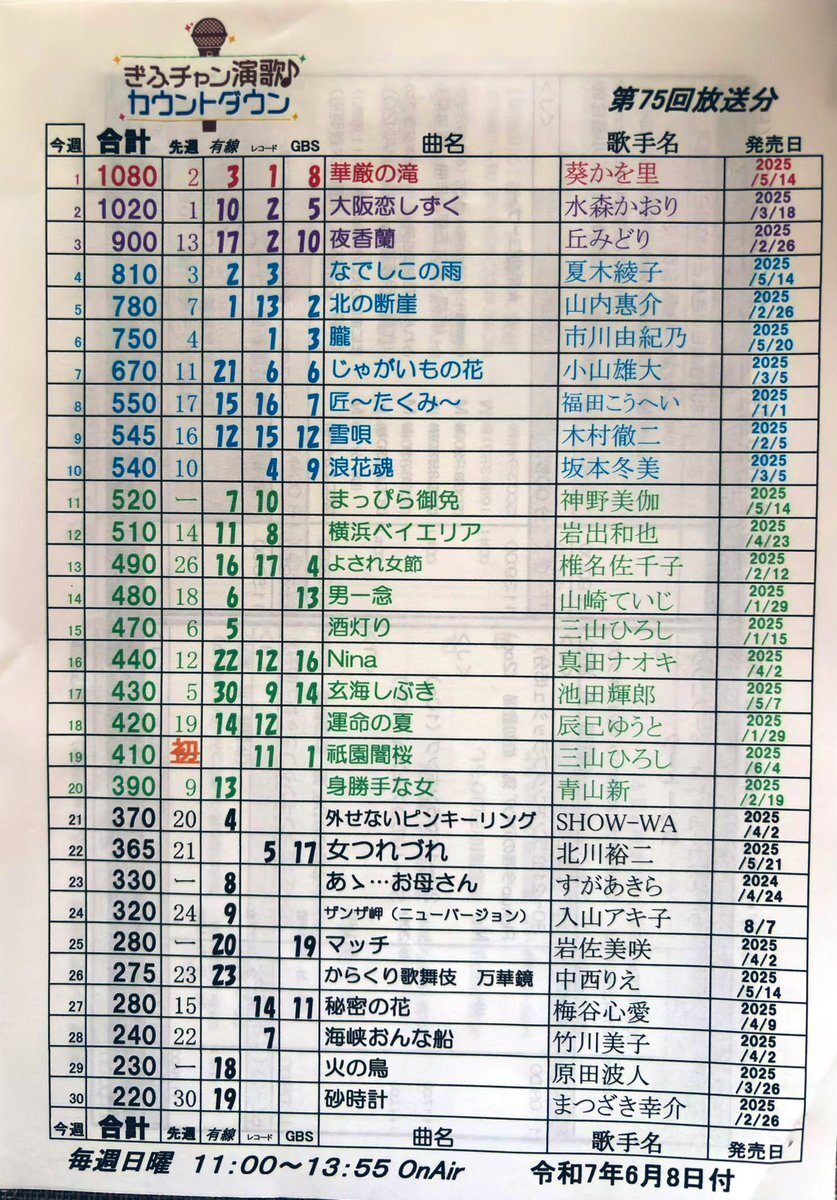 ぎふチャン演歌♪
カウントダウン
第75回放送分
今週 合計 先週 有線 レコード GBS 曲名 歌手名 発売日
1 1080 2 3 1 8 華厳の滝 葵かを里 2025/5/14
2 1020 1 10 2 5 大阪恋しずく 水森かおり 2025/3/18
3 900 13 17 2 10 夜香蘭 丘みどり 2025/2/26
4 810 3 2 3 なでしこの雨 夏木綾子 2025/5/14
5 780 7 1 13 2 北の断崖 山内惠介 2025/2/26
6 750 4 1 3 朧 市川由紀乃 2025/5/20
7 670 11 21 6 6 じゃがいもの花 小山雄大 2025/3/5
8 550 17 15 16 7 匠〜たくみ〜 福田こうへい 2025/1/1
9 545 16 12 15 12 雪唄 木村徹二 2025/2/5
10 540 10 4 9 浪花魂 坂本冬美 2025/3/5
11 520 ー 7 10 まっぴら御免 神野美伽 2025/5/14
12 510 14 11 8 横浜ベイエリア 岩出和也 2025/4/23
13 490 26 16 17 4 よされ女節 椎名佐千子 2025/2/12
14 480 18 6 13 男一念 山崎ていじ 2025/1/29
15 470 6 5 酒灯り 三山ひろし 2025/1/15
16 440 12 22 12 16 Nina 真田ナオキ 2025/4/2
17 430 5 30 9 14 玄海しぶき 池田輝郎 2025/5/7
18 420 19 14 12 運命の夏 辰巳ゆうと 2025/1/29
19 410 初 11 1 祇園闇桜 三山ひろし 2025/6/4
20 390 9 13 身勝手な女 青山新 2025/2/19
21 370 20 4 外せないピンキーリング SHOW-WA 2025/4/2
22 365 21 5 17 女つれづれ 北川裕二 2025/5/21
23 330 ー 8 あゝ…お母さん すがあきら 2024/4/24
24 320 24 9 ザンザ岬（ニューバージョン） 入山アキ子 8/7
25 280 ー 20 19 マッチ 岩佐美咲 2025/4/2
26 275 23 23 からくり歌舞伎 万華鏡 中西りえ 2025/5/14
27 280 15 14 11 秘密の花 梅谷心愛 2025/4/9
28 240 22 7 海峡おんな船 竹川美子 2025/4/2
29 230 ー 18 火の鳥 原田波人 2025/3/26
30 220 30 19 砂時計 まつざき幸介 2025/2/26
今週 合計 先週 有線 レコード GBS 曲名 歌手名 発売日
毎週日曜 11:00〜13:55 OnAir 令和7年6月8日付